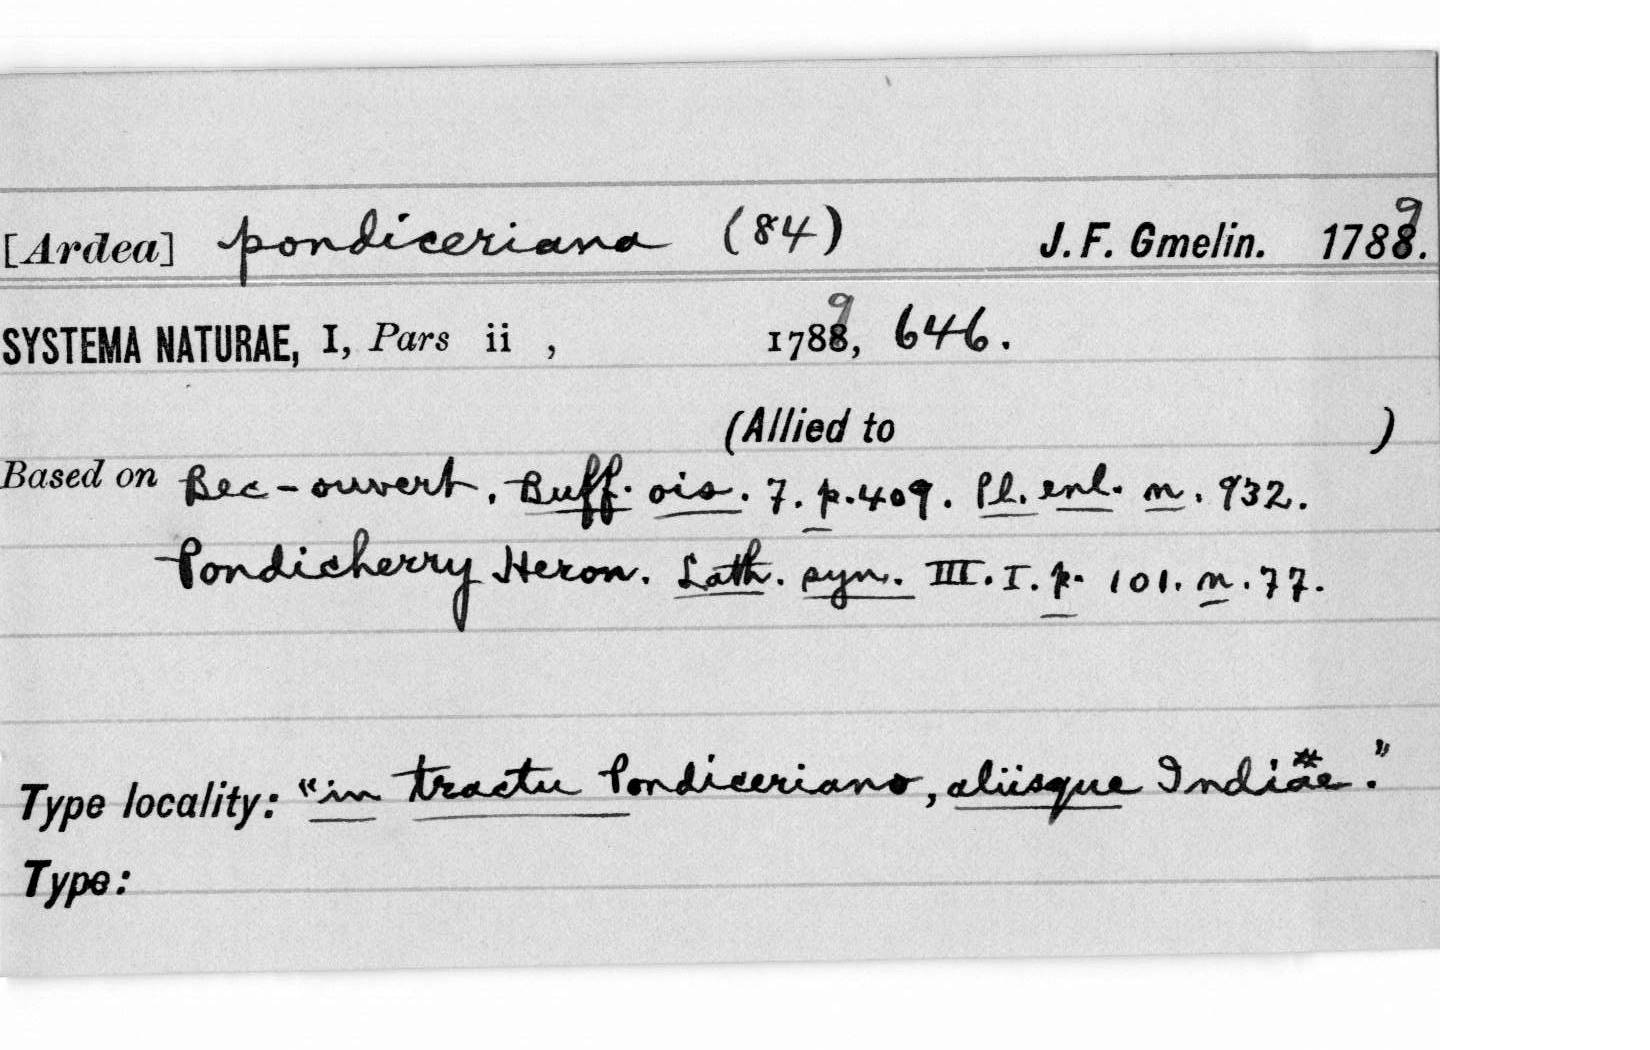 [Ardea] pondiceriana (84) J. F. Gmelin. 1789.
SYSTEMA NATURAE, I, Pars ii , 1789, 646.
(Allied to )
Based on Bec-ouvert. Buff. ois. 7. p. 409. Pl. enl. n. 932.
Pondicherry Heron. Lath. syn. III. I. p. 101. n. 77.
Type locality: "in tractu Pondiceriano, aliisque Indiae."
Type: